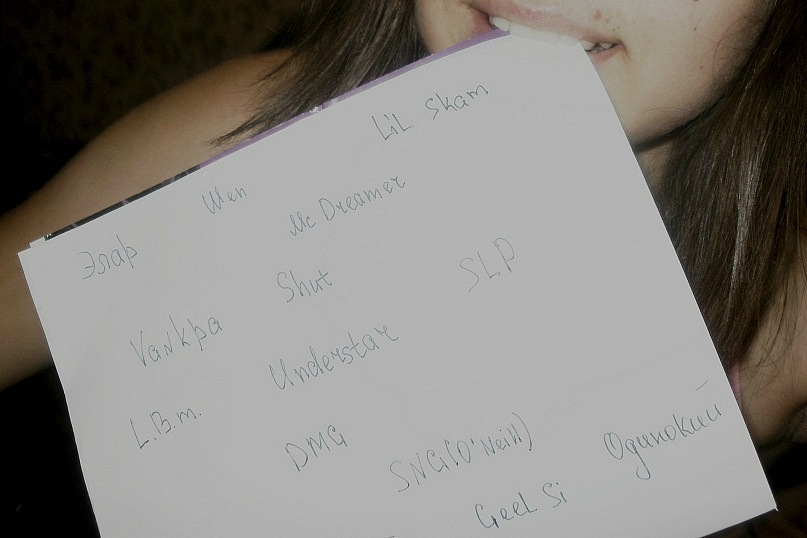 Lil Skam
Шен
Mc Dreamer
Элар
Shut
SLP
Vankpa
Understar
L.B.m.
DMG
SNG(O'Neill)
Одинокий
Geel Si